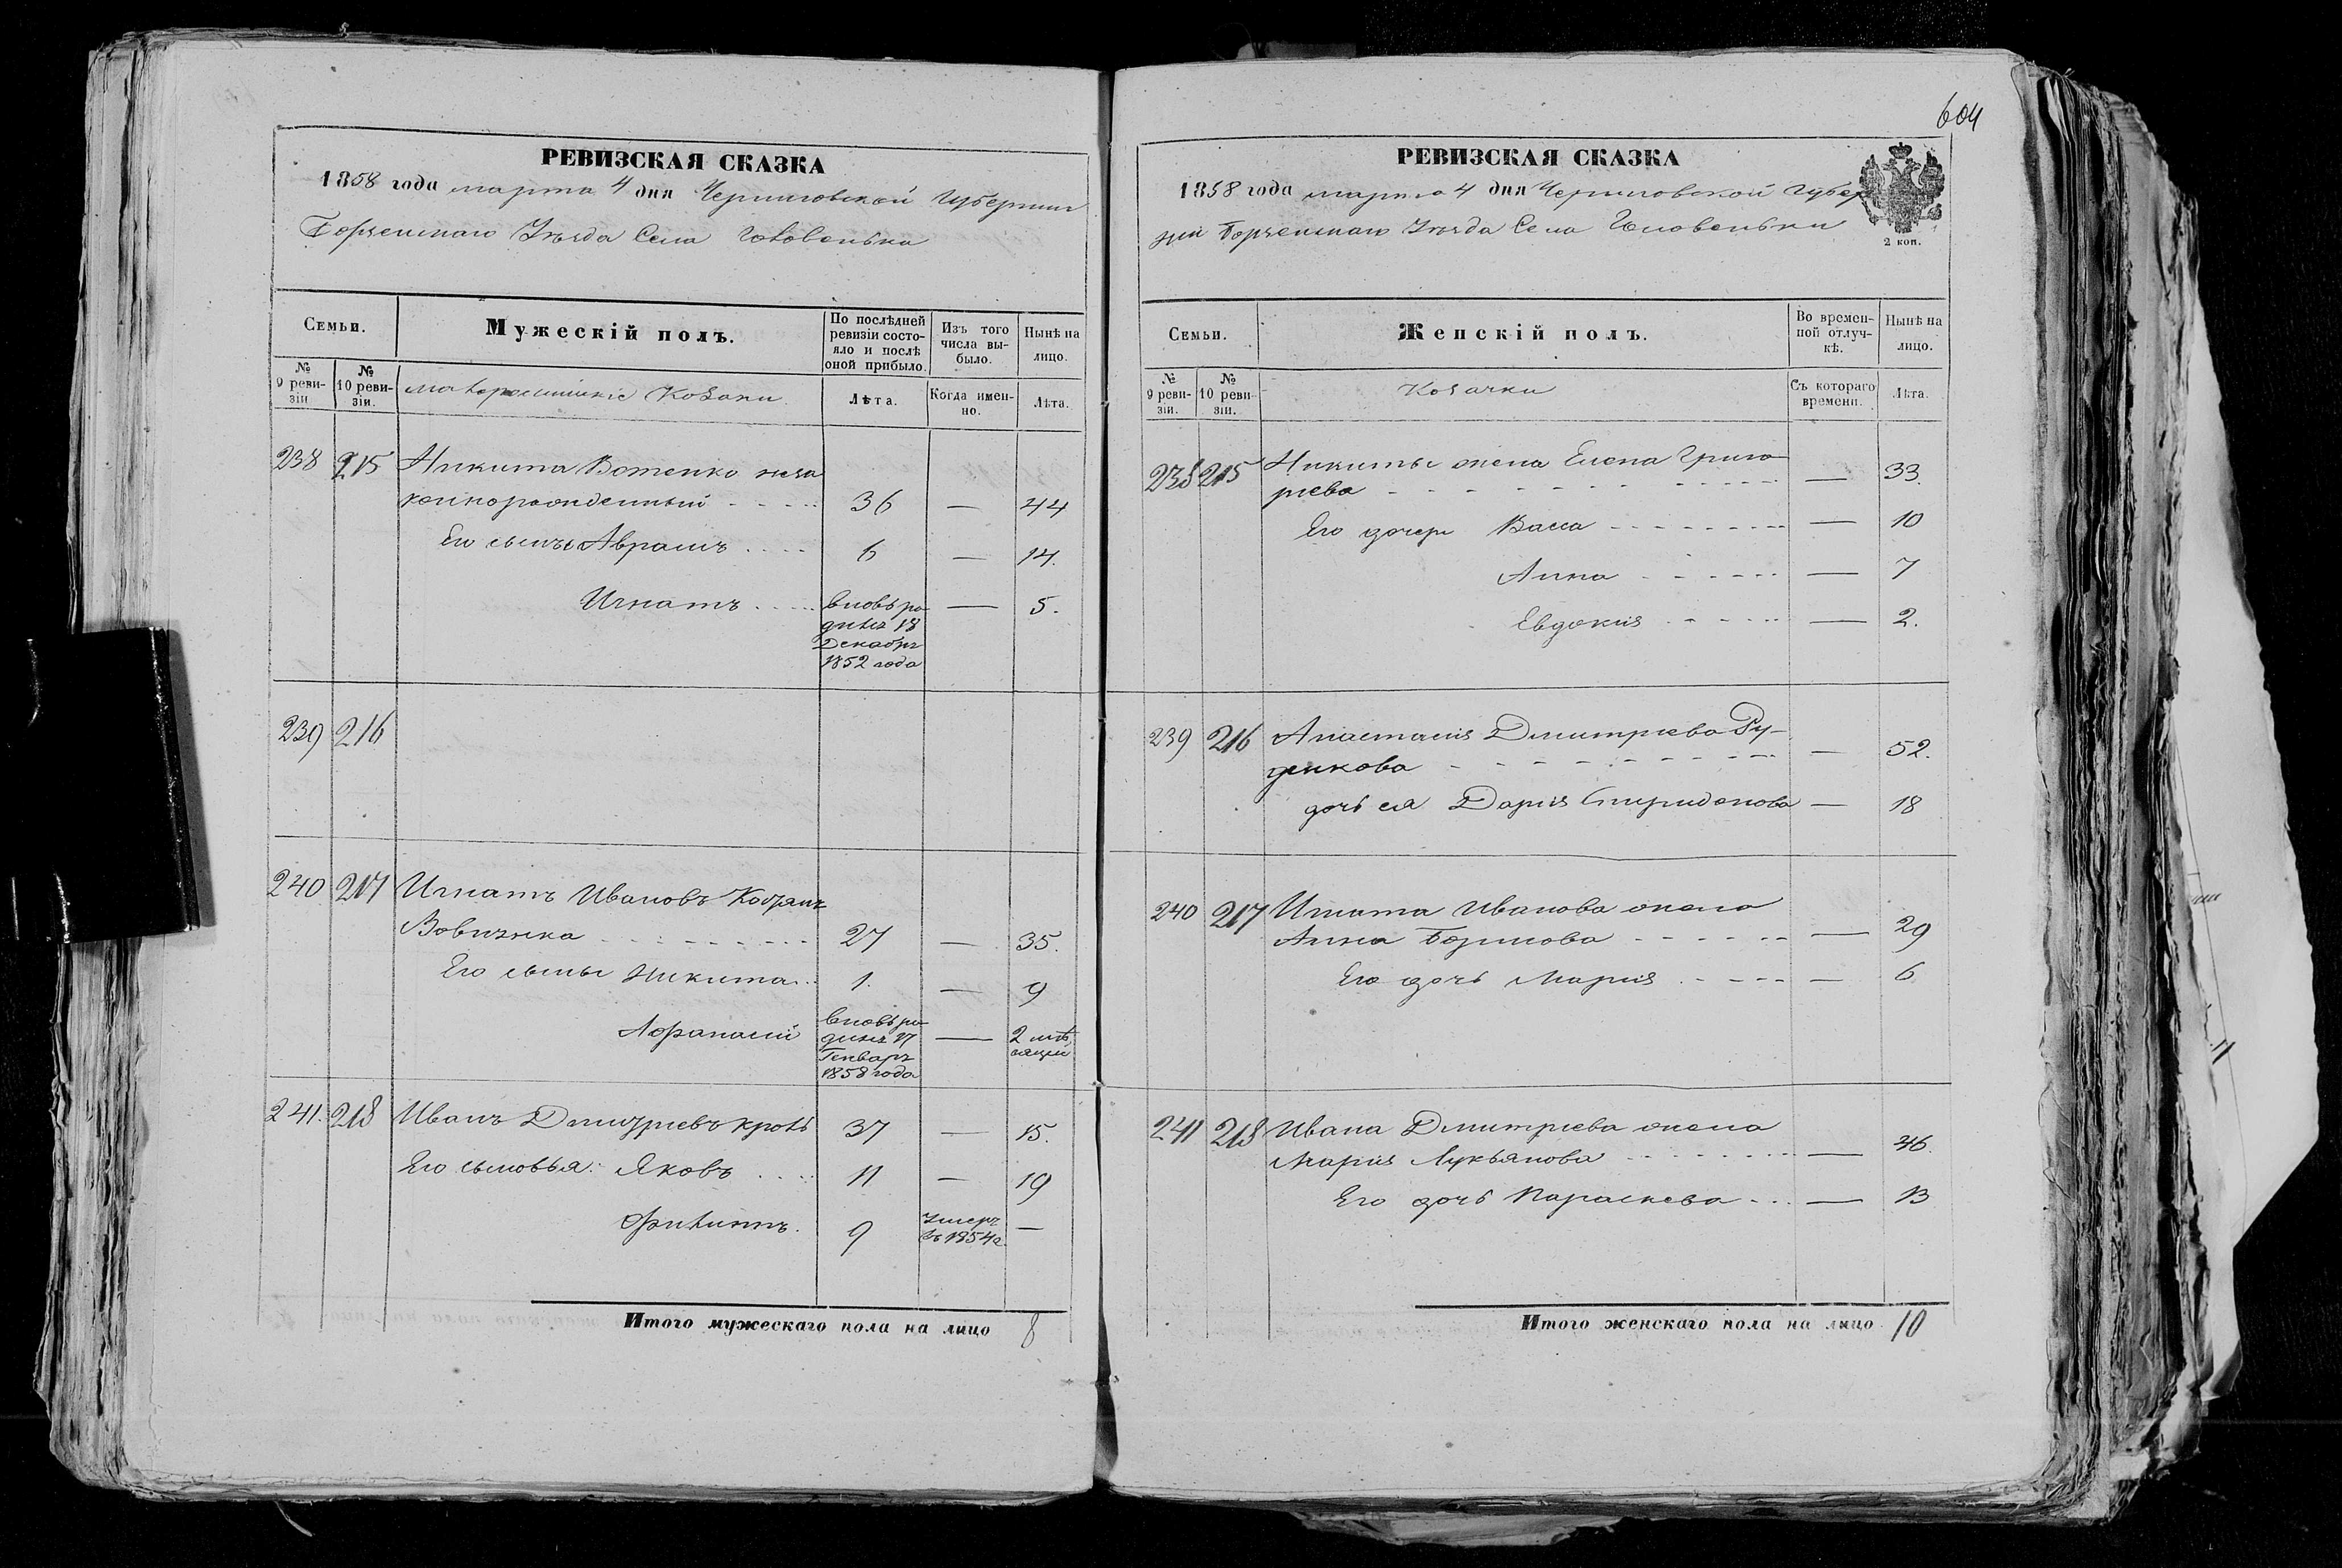 604
РЕВИЗСКАЯ СКАЗКА
1858 года марта 4 дня Черниговской Губернии
Борзенскаго Уезда Села Головеньки
Семьи.
Мужескій полъ.
По послѣдней ревизіи состояло и послѣ оной прибыло.
Изъ того числа выбыло.
Нынѣ на лицо.
№ 9 ревизіи.
№ 10 ревизіи.
малороссийские Козаки
Лѣта.
Когда именно.
Лѣта.
238 215 Никита Вотенко неза
коннорожденный 36 — 44
Его сынъ Авраамъ 6 — 14.
Игнатъ вновь ро — 5.
дился 18
Декабря
1852 года
239 216
240 217 Игнатъ Ивановъ
Вовчика 27 — 35.
Его сыны Никита 1. — 9
Афанасий вновь ро — 2 мѣ
дился 17 сяцы
Генваря
1858 года
241. 218 Иванъ Дмитриевъ Кроль 37 — 15.
Его сыновья: Яковъ 11 — 19
Филиппъ. 9 Умеръ —
въ 1854 г.
Итого мужескаго пола на лицо 8
РЕВИЗСКАЯ СКАЗКА
1858 года марта 4 дня Черниговской Губер
нии Борзенскаго Уезда Села Головеньки
2 коп.
Семьи.
Женскій полъ.
Во временной отлучкѣ.
Нынѣ на лицо.
№ 9 ревизіи.
№ 10 ревизіи.
Козачки
Съ котораго времени.
Лѣта.
238 215 Никиты жена Елена Григо
риева — 33.
Его дочери Васса — 10
Анна — 7
Евдокия — 2.
239 216 Анастасия Дмитриева Ру-
денкова — 52.
дочь ея Дария Спиридонова — 18
240 217 Игната Иванова жена
Анна Борисова — 29
Его дочь Мария — 6
241 218 Ивана Дмитриева жена
Мария Лукьянова — 46.
Его дочь Параскева — 13
Итого женскаго пола на лицо 10